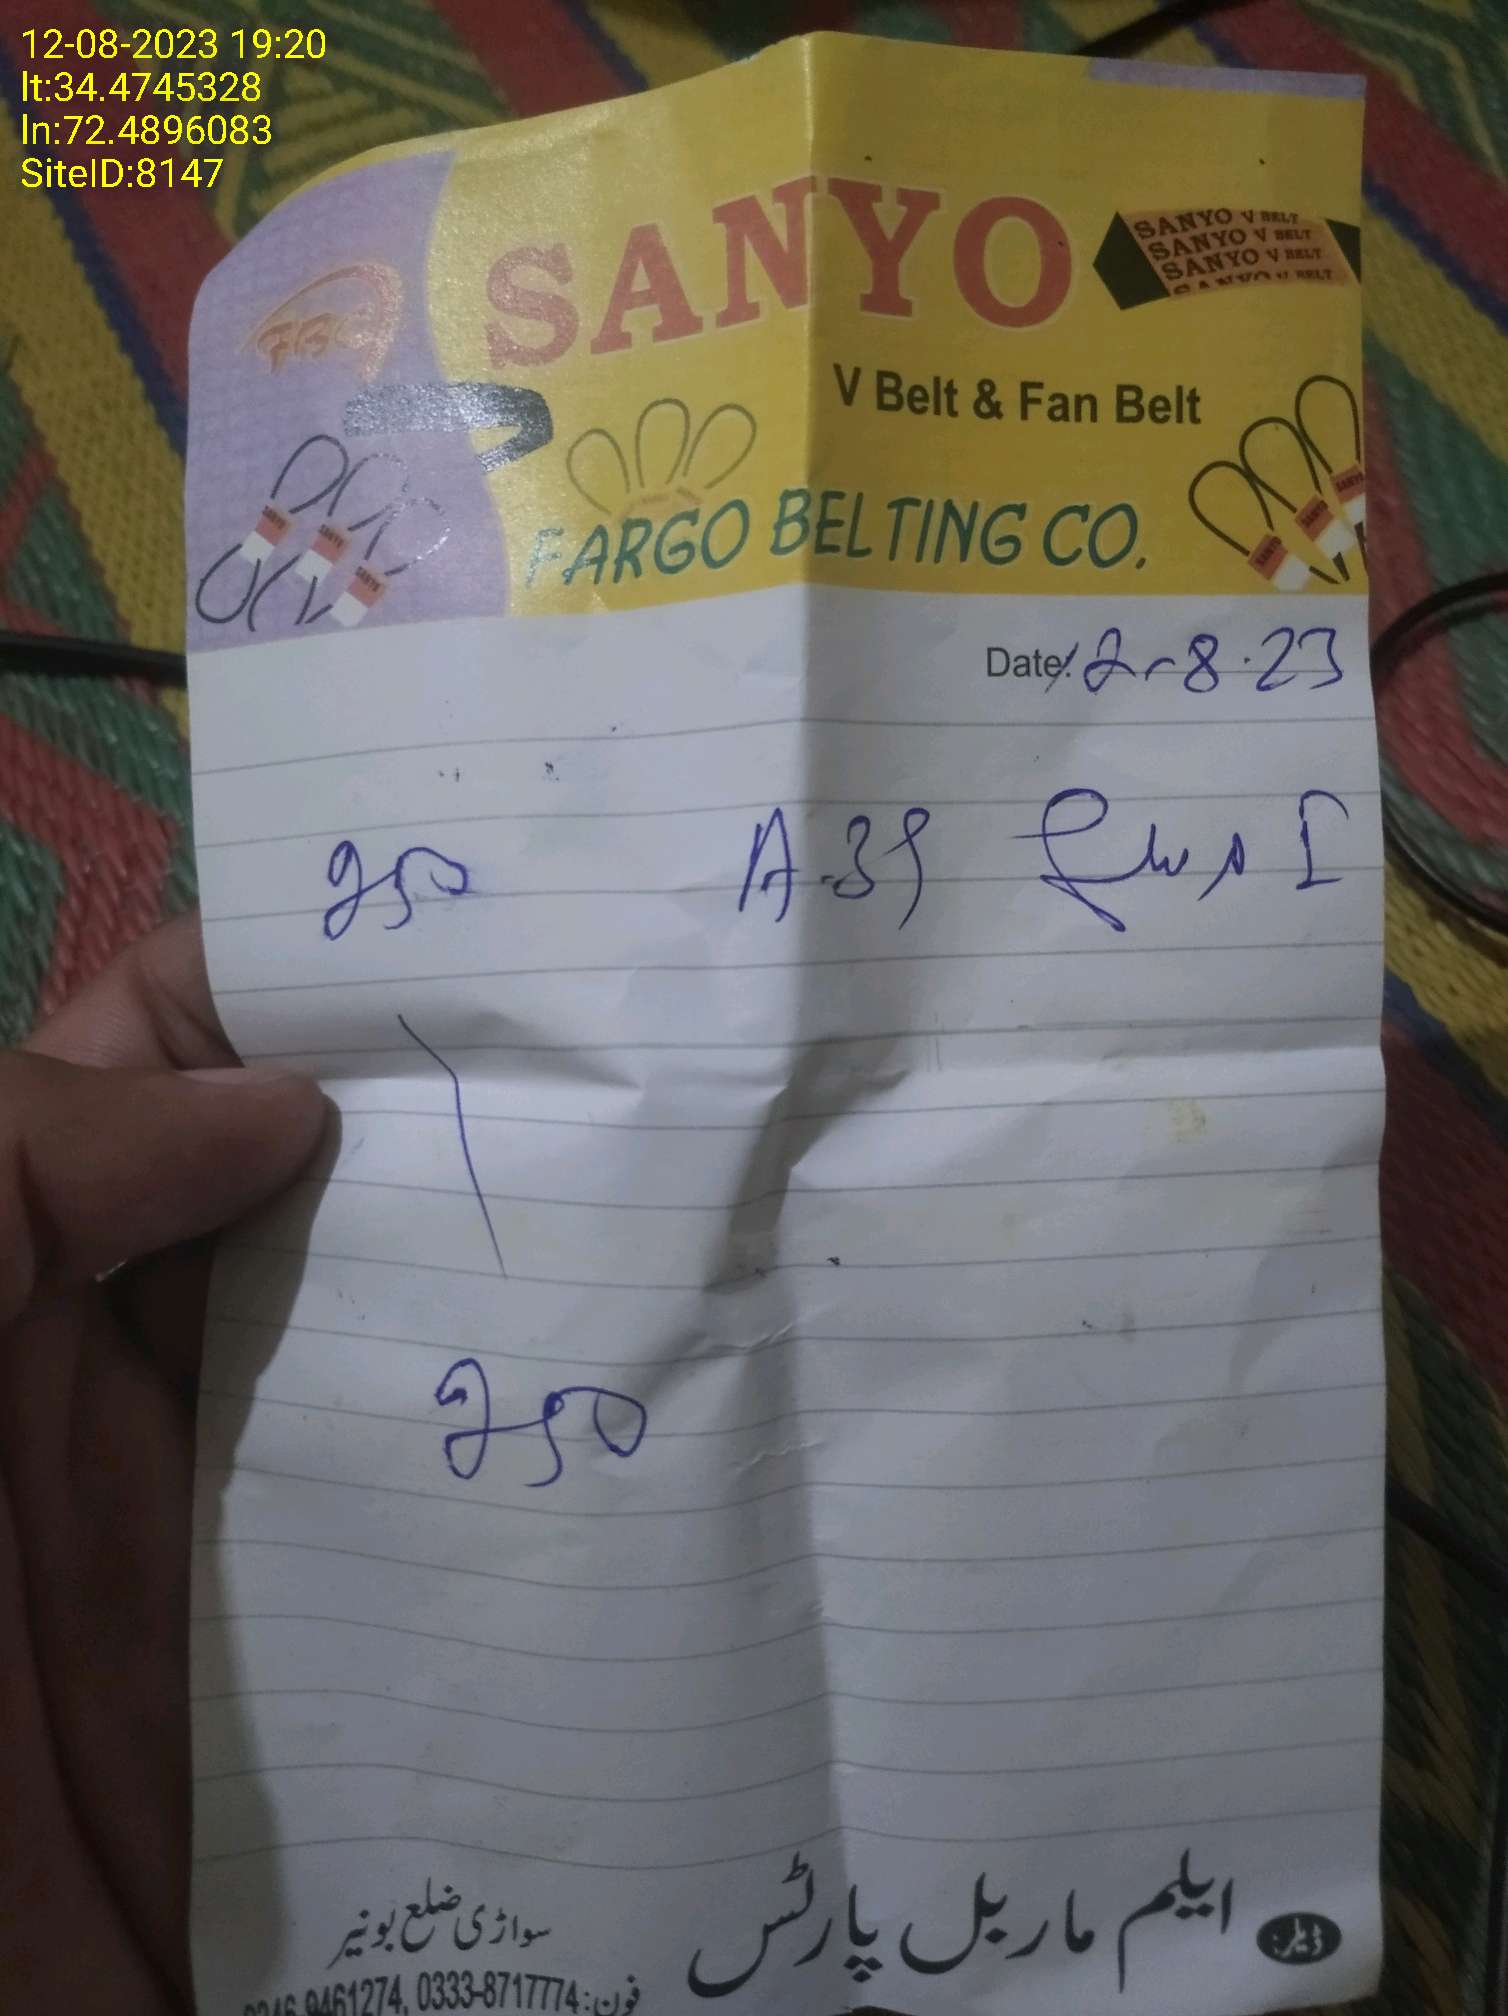 12-08-2023 19:20
lt:34.4745328
ln:72.4896083
SiteID:8147
FBC
SANYO
SANYO V BELT
SANYO V BELT
SANYO V BELT
SANYO V BELT
V Belt & Fan Belt
FARGO BELTING CO.
SANYO
SANYO
SANYO
SANYO
SANYO
SANYO
Date: 12-8-23
A-39
250
250
ڈیلر:
ایلم ماربل پارٹس
سواڑی ضلع بونیر
فون: 0333-8717774, 0346-9461274